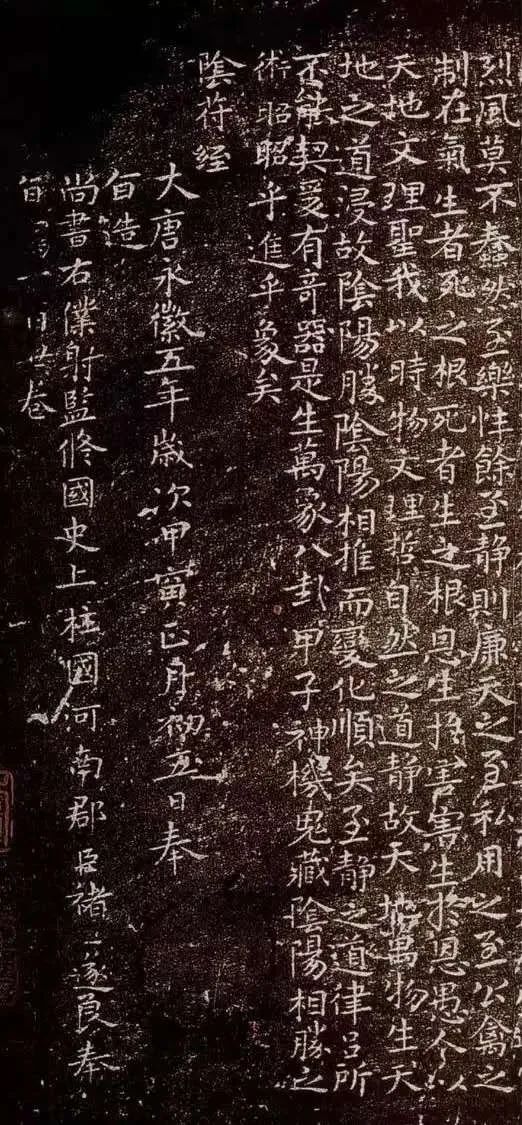 烈風莫不蠢然至樂性餘至静則廉天之至私用之至公禽之
制在氣生者死之根死者生之根恩生扵害害生扵恩愚人以
天地文理聖我以時物文理哲自然之道静故天地萬物生天
地之道浸故陰陽勝陰陽相推而變化順矣至静之道律吕所
不能契爰有奇器是生萬象八卦甲子神機鬼藏陰陽相勝之
術昭昭乎進乎象矣
陰符經
大唐永徽五年歲次甲寅正月初五日奉
旨造
尚書右僕射監修國史上柱國河南郡臣褚遂良奉
旨一卷